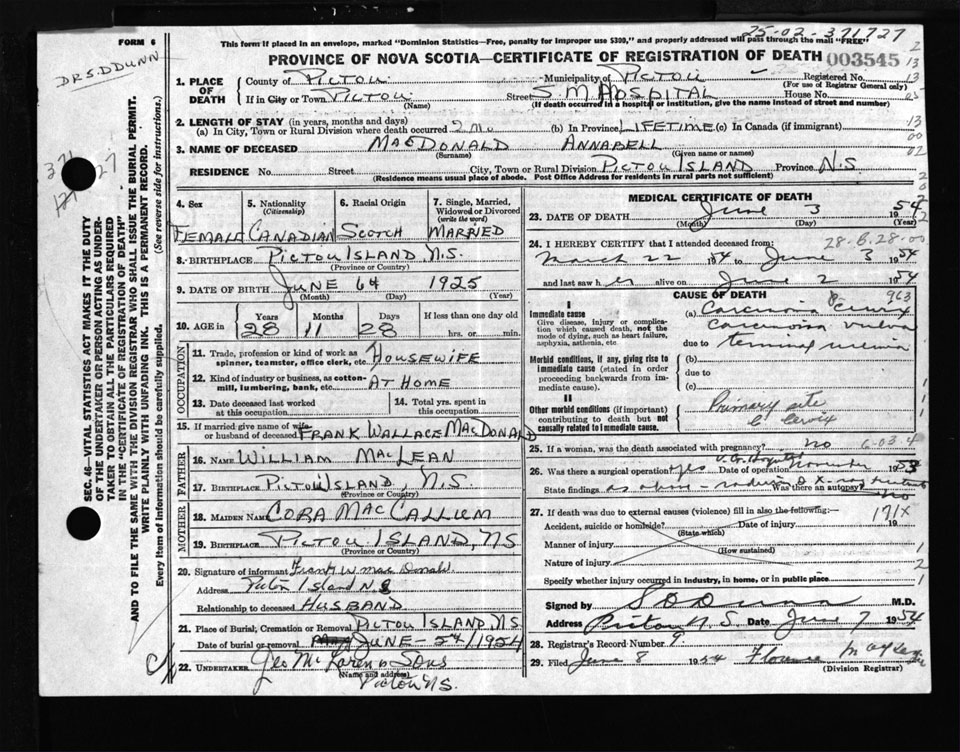 25-02-371727
FORM 6
This form if placed in an envelope, marked "Dominion Statistics—Free, penalty for improper use $300," and properly addressed will pass through the mail "FREE"
DR S.D DUNN
PROVINCE OF NOVA SCOTIA—CERTIFICATE OF REGISTRATION OF DEATH 003545
1. PLACE OF DEATH
County of PICTOU Municipality of PICTOU Registered No.
(For use of Registrar General only)
If in City or Town PICTOU (Name) Street S M HOSPITAL House No.
(If death occurred in a hospital or institution, give the name instead of street and number)
2. LENGTH OF STAY (in years, months and days)
(a) In City, Town or Rural Division where death occurred 2 MO (b) In Province LIFETIME (c) In Canada (if immigrant)
3. NAME OF DECEASED MACDONALD ANNABELL
(Surname) (Given name or names)
RESIDENCE No. Street City, Town or Rural Division PICTOU ISLAND Province N.S
(Residence means usual place of abode. Post Office Address for residents in rural parts not sufficient)
4. Sex FEMALE
5. Nationality (Citizenship) CANADIAN
6. Racial Origin SCOTCH
7. Single, Married, Widowed or Divorced (write the word) MARRIED
8. BIRTHPLACE PICTOU ISLAND N.S.
(Province or Country)
9. DATE OF BIRTH JUNE 6th 1925
(Month) (Day) (Year)
10. AGE in Years 28 Months 11 Days 28 If less than one day old hrs. or min.
OCCUPATION
11. Trade, profession or kind of work as spinner, teamster, office clerk, etc. HOUSEWIFE
12. Kind of industry or business, as cotton-mill, lumbering, bank, etc. AT HOME
13. Date deceased last worked at this occupation
14. Total yrs. spent in this occupation
15. If married give name of wife or husband of deceased FRANK WALLACE MACDONALD
FATHER
16. NAME WILLIAM MACLEAN
17. BIRTHPLACE PICTOU ISLAND, N.S
(Province or Country)
MOTHER
18. MAIDEN NAME CORA MACCALLUM
19. BIRTHPLACE PICTOU ISLAND, NS
(Province or Country)
20. Signature of informant Frank W MacDonald
Address Pictou Island N.S
Relationship to deceased HUSBAND
21. Place of Burial, Cremation or Removal PICTOU ISLAND, NS
Date of burial or removal JUNE - 5th/1954
22. UNDERTAKER Geo McLaren & Sons
(Name and address)
Pictou N.S.
MEDICAL CERTIFICATE OF DEATH
23. DATE OF DEATH June 3 1954
(Month) (Day)
24. I HEREBY CERTIFY that I attended deceased from:
28-B-28-00
March 22 1954 to June 3 1954
and last saw her alive on June 2 1954
CAUSE OF DEATH 963
I
Immediate cause
Give disease, injury or complication which caused death, not the mode of dying, such as heart failure, asphyxia, asthenia, etc.
(a) Carcinoma Cervix
Carcinoma vulva
due to terminal uremia
Morbid conditions, if any, giving rise to immediate cause (stated in order proceeding backwards from immediate cause).
(b)
due to
(c)
II
Other morbid conditions (if important) contributing to death but not causally related to immediate cause.
Primary site
C Cervix
25. If a woman, was the death associated with pregnancy? no 6-03-4
V.G. Hospital
26. Was there a surgical operation? yes Date of operation November 1953
State findings as above - radium & X-ray treatment
Was there an autopsy? no
27. If death was due to external causes (violence) fill in also the following:—
171X
Accident, suicide or homicide? Date of injury 19
(State which)
Manner of injury
(How sustained)
Nature of injury
Specify whether injury occurred in industry, in home, or in public place
Signed by S D Dunn M.D.
Address Pictou N.S. Date June 7 1954
28. Registrar's Record Number 9
29. Filed June 8 1954 Florence
(Division Registrar)
SEC. 46—VITAL STATISTICS ACT MAKES IT THE DUTY OF THE UNDERTAKER OR PERSON ACTING AS UNDERTAKER TO OBTAIN ALL THE PARTICULARS REQUIRED IN THE "CERTIFICATE OF REGISTRATION OF DEATH" AND TO FILE THE SAME WITH THE DIVISION REGISTRAR WHO SHALL ISSUE THE BURIAL PERMIT.
WRITE PLAINLY WITH UNFADING INK. THIS IS A PERMANENT RECORD.
Every item of information should be carefully supplied. (See reverse side for instructions.)